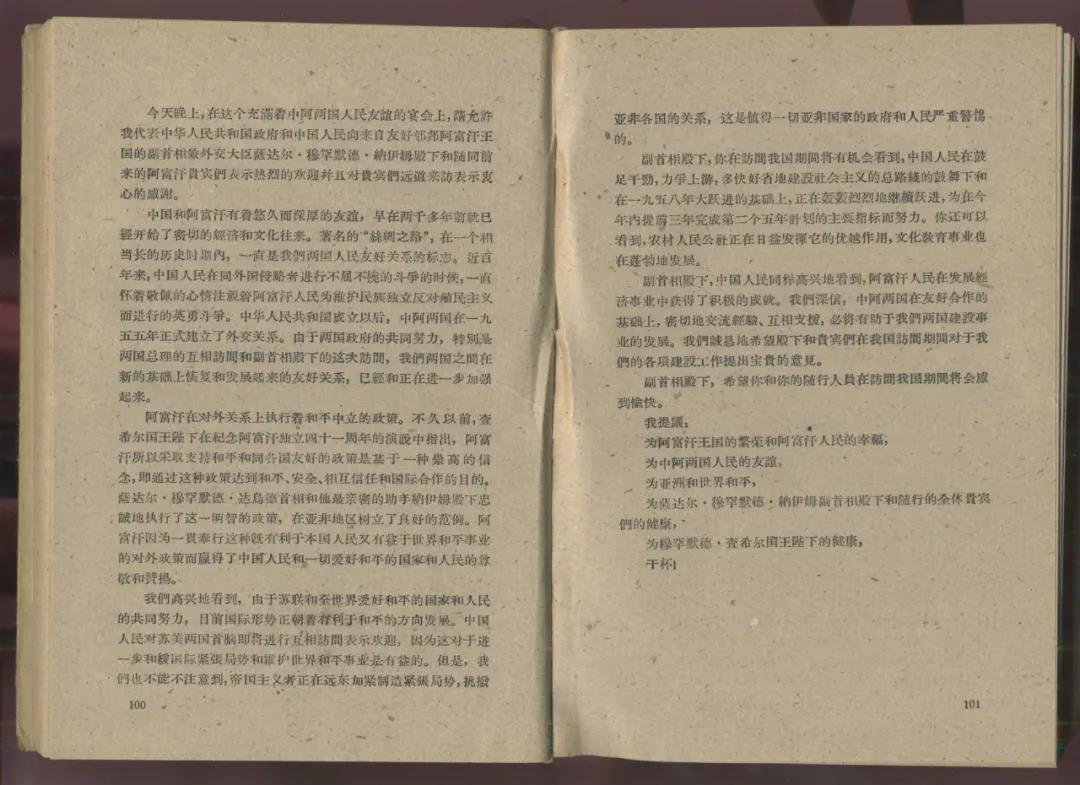 今天晚上，在这个充滿着中阿两国人民友誼的宴会上，請允許
我代表中华人民共和国政府和中国人民向来自友好邻邦阿富汗王
国的副首相兼外交大臣薩达尔·穆罕默德·納伊姆殿下和随同前
来的阿富汗貴宾們表示热烈的欢迎并且对貴宾們远道来訪表示衷
心的感謝。
中国和阿富汗有着悠久而深厚的友誼，早在两千多年前就已
經开始了密切的經济和文化往来。著名的“絲綢之路”，在一个相
当长的历史时期內，一直是我們两国人民友好关系的标志。近百
年来，中国人民在同外国侵略者进行不屈不撓的斗爭的时候，一直
怀着敬佩的心情注視着阿富汗人民为維护民族独立反对殖民主义
而进行的英勇斗爭。中华人民共和国成立以后，中阿两国在一九
五五年正式建立了外交关系。由于两国政府的共同努力，特別是
两国总理的互相訪問和副首相殿下的这次訪問，我們两国之間在
新的基础上恢复和发展起来的友好关系，已經和正在进一步加强
起来。
阿富汗在对外关系上执行着和平中立的政策。不久以前，查
希尔国王陛下在紀念阿富汗独立四十一周年的演說中指出，阿富
汗所以采取支持和平和同各国友好的政策是基于一种崇高的信
念，即通过这种政策达到和平、安全、相互信任和国际合作的目的。
薩达尔·穆罕默德·达烏德首相和他最亲密的助手納伊姆殿下忠
誠地执行了这一明智的政策，在亚非地区树立了良好的范例。阿
富汗因为一貫奉行这种既有利于本国人民又有益于世界和平事业
的对外政策而贏得了中国人民和一切爱好和平的国家和人民的尊
敬和贊揚。
我們高兴地看到，由于苏联和全世界爱好和平的国家和人民
的共同努力，目前国际形势正朝着有利于和平的方向发展。中国
人民对苏美两国首脑即将进行互相訪問表示欢迎，因为这对于进
一步和緩国际紧张局势和維护世界和平事业是有益的。但是，我
們也不能不注意到，帝国主义者正在远东加紧制造紧張局势，挑撥
100
亚非各国的关系，这是值得一切亚非国家的政府和人民严重警惕
的。
副首相殿下，你在訪問我国期間将有机会看到，中国人民在鼓
足干勁，力爭上游，多快好省地建設社会主义的总路綫的鼓舞下和
在一九五八年大跃进的基础上，正在轰轰烈烈地继續跃进，为在今
年內提前三年完成第二个五年計划的主要指标而努力。你还可以
看到，农村人民公社正在日益发揮它的优越作用，文化敎育事业也
在蓬勃地发展。
副首相殿下，中国人民同样高兴地看到，阿富汗人民在发展經
济事业中获得了积极的成就。我們深信，中阿两国在友好合作的
基础上，密切地交流經驗、互相支援，必将有助于我們两国建設事
业的发展。我們誠恳地希望殿下和貴宾們在我国訪問期間对于我
們的各項建設工作提出宝貴的意見。
副首相殿下，希望你和你的随行人員在訪問我国期間将会感
到愉快。
我提議：
为阿富汗王国的繁荣和阿富汗人民的幸福，
为中阿两国人民的友誼，
为亚洲和世界和平，
为薩达尔·穆罕默德·納伊姆副首相殿下和随行的全体貴宾
們的健康，
为穆罕默德·查希尔国王陛下的健康，
干杯！
101